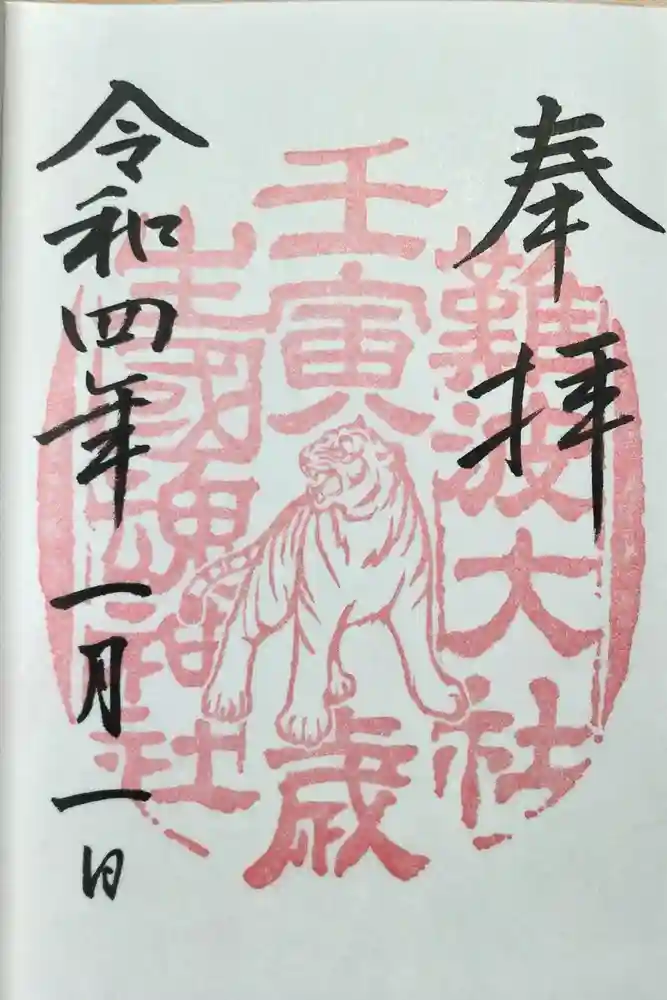 奉拝
難波大社
壬寅歳
生國魂神社
令和四年一月一日